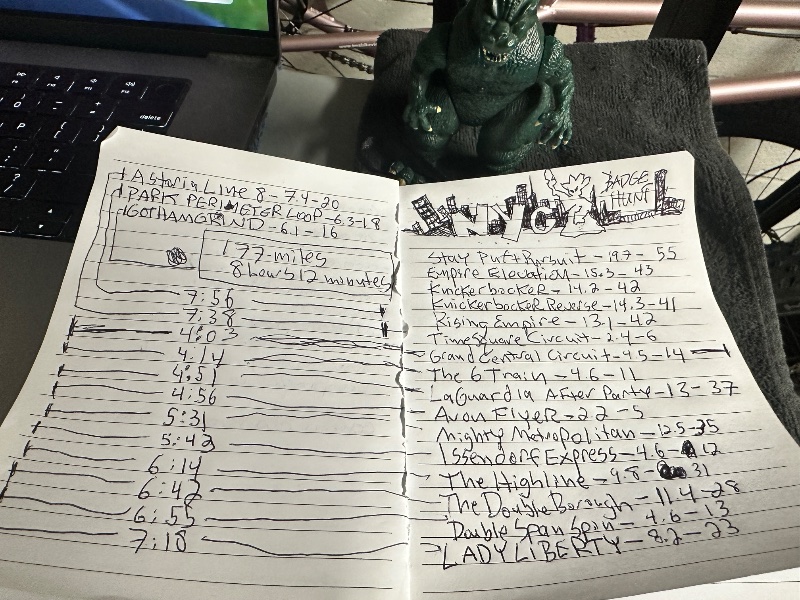 Astoria Line 8 - 7.4-20
PARK PERIMETER LOOP - 6.3-18
GOTHAM GRIND - 6.1 - 16
177 miles
8 hours 12 minutes
7:56
7:38
4:03
4:14
4:51
4:56
5:31
5:42
6:14
6:42
6:55
7:18
BADGE
HUNT
Stay Puft Pursuit - 19.7 - 55
Empire Elevation - 15.3 - 43
Knickerbocker - 14.2 - 42
Knickerbocker Reverse - 14.3 - 41
Rising Empire - 13.1 - 42
Time Square Circuit - 2.4 - 6
Grand Central Circuit - 4.5 - 14
The 6 Train - 4.6 - 11
LaGuardia After Party - 13 - 37
Avon Flyer - 2.2 - 5
Mighty Metropolitan - 12.5 - 35
Issendorf Express - 4.6 - 12
The Highline - 9.8 - 31
The Double Borough - 11.4 - 28
Double Span Spin - 4.6 - 13
LADY LIBERTY - 8.2 - 23
delete